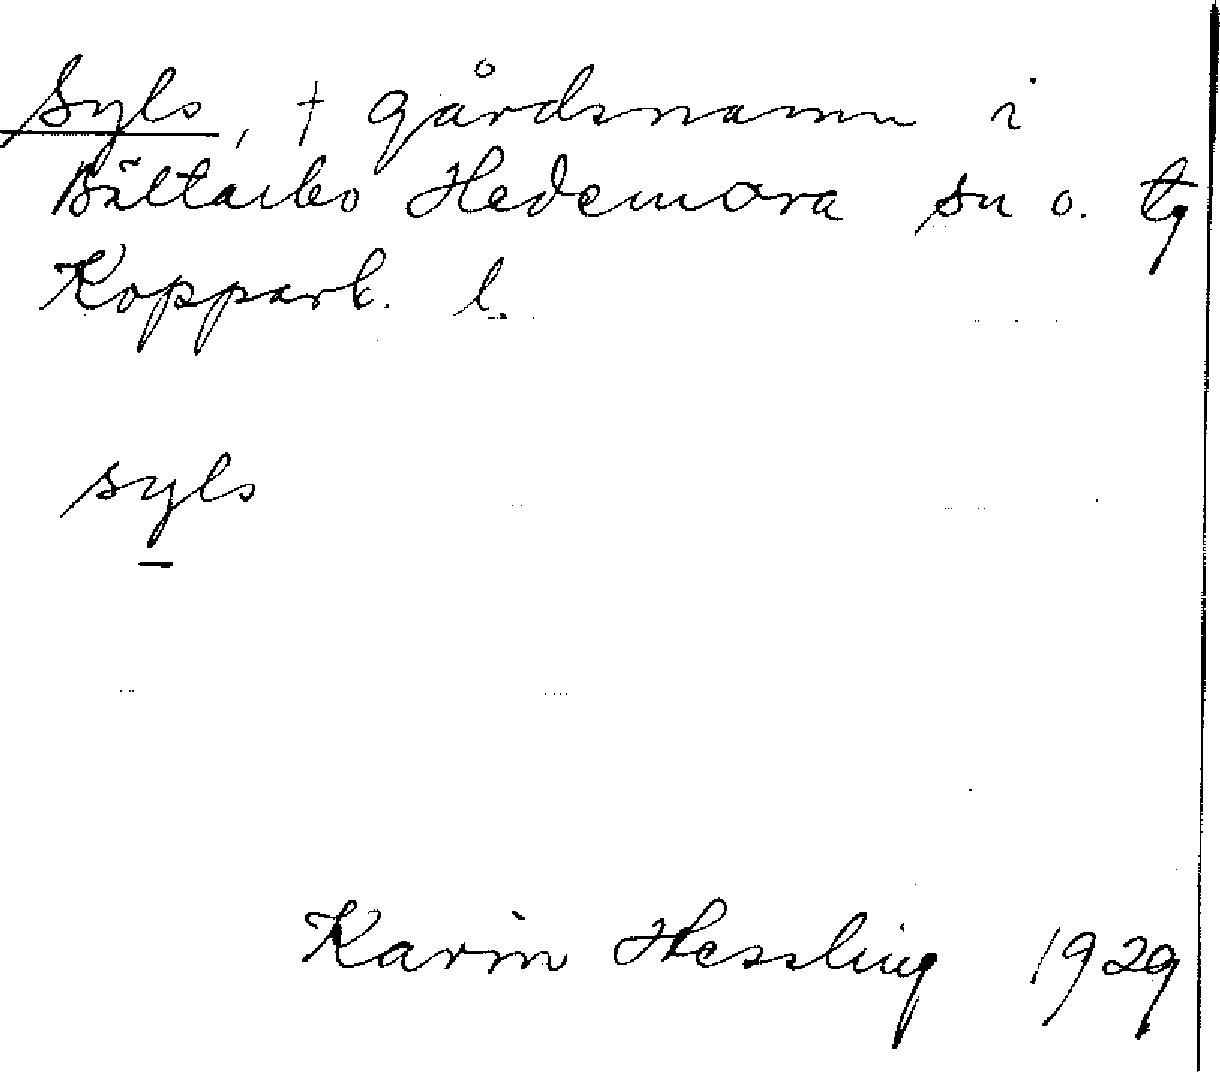 Syls, † gårdsnamn i
Bältarbo Hedemora sn o. tg
Kopparb. l.
syls
Karin Hessling 1929